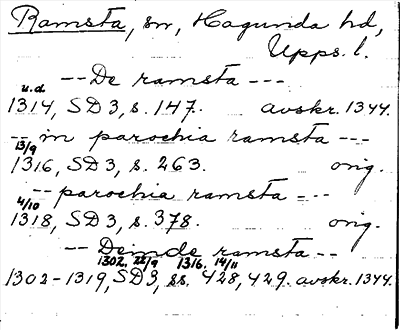 Ramsta, sn, Hagunda hd,
Upps. l.
-- De ramsta ---
u.d.
1314, SD 3, s. 147. avskr. 1344.
-- in parochia ramsta ---
13/9
1316, SD 3, s. 263. orig.
-- parochia ramsta ---
4/10
1318, SD 3, s. 378. orig.
-- Deinde ramsta --
1302. 22/9 1316. 14/11
1302-1319, SD 3, ss. 428, 429. avskr. 1344.